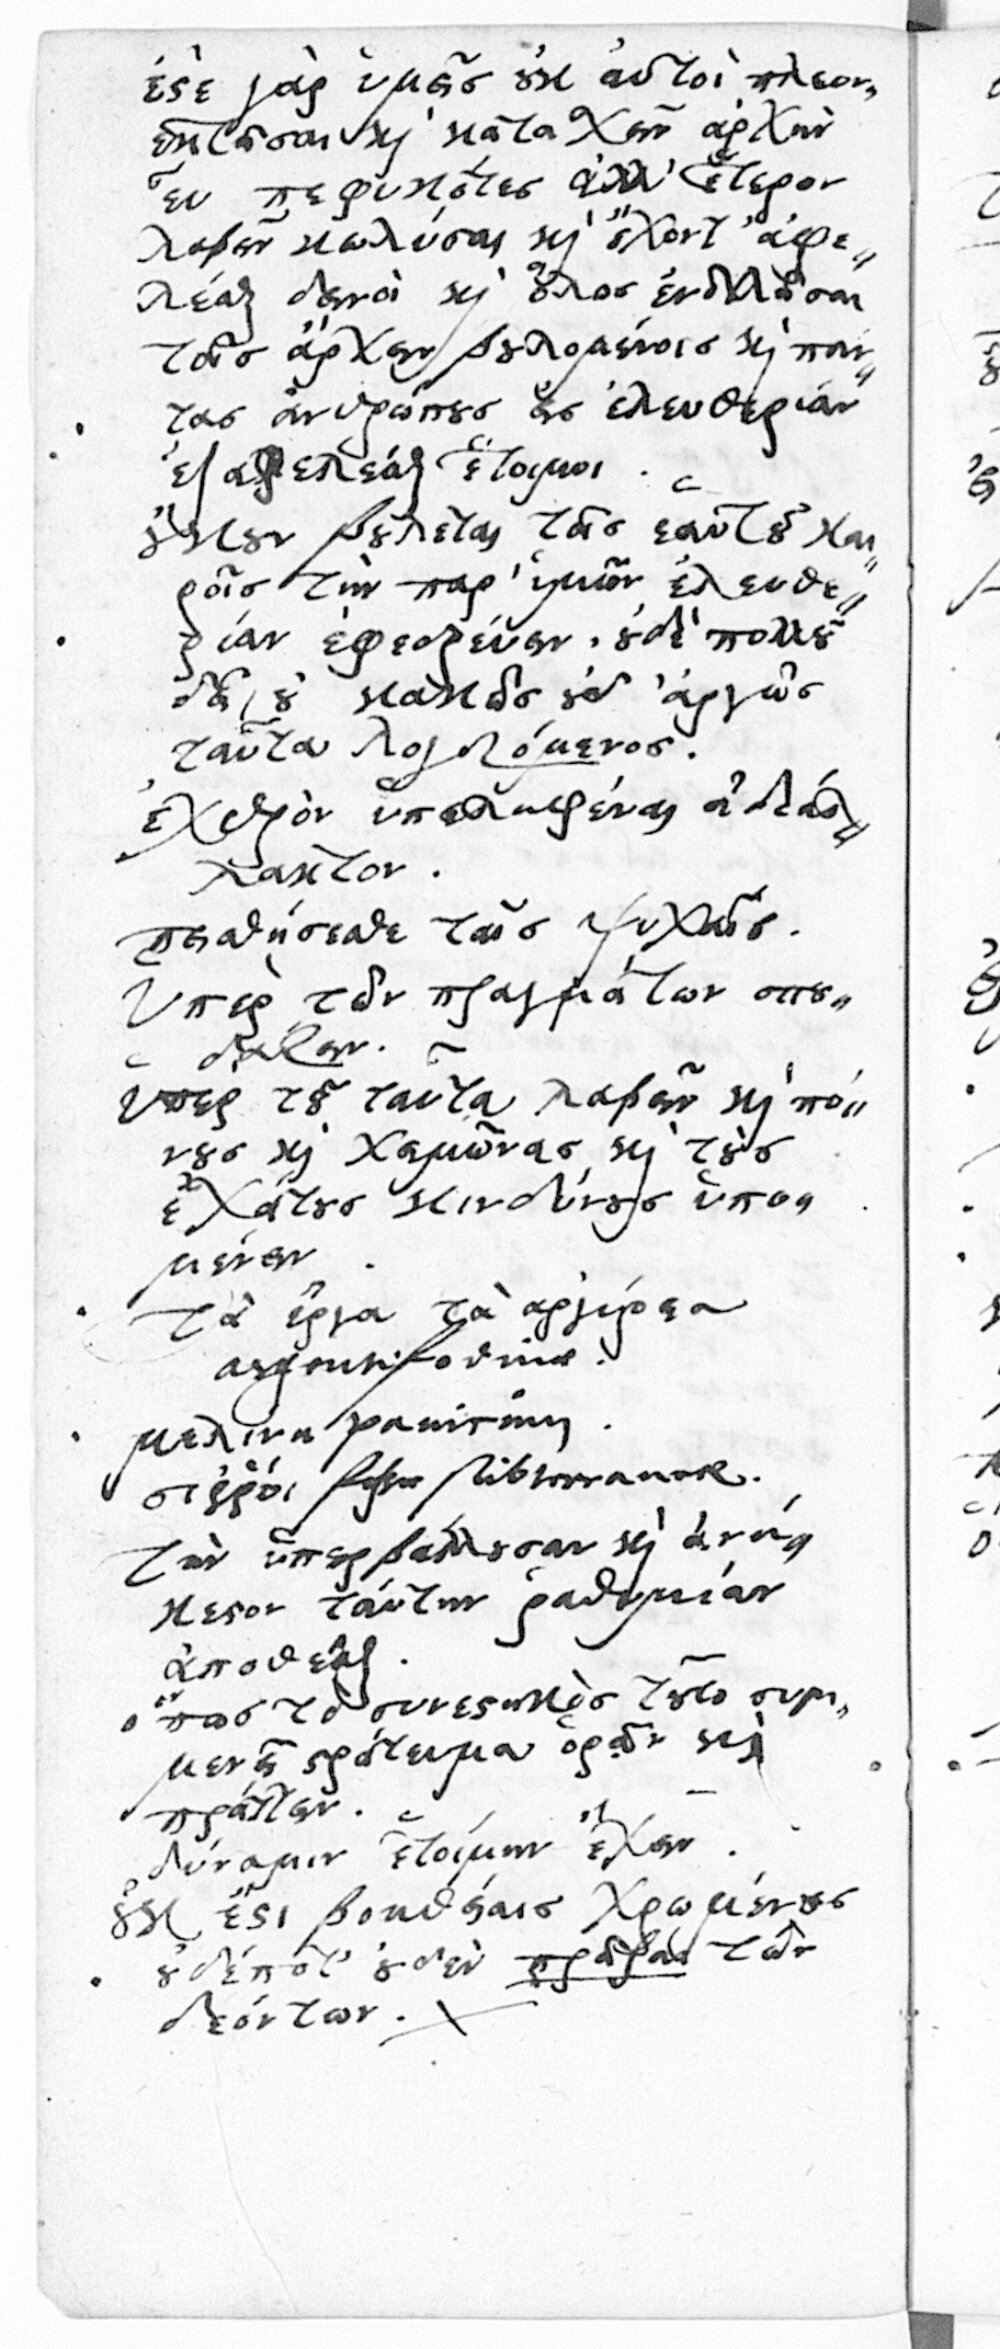 ἐστὲ γὰρ ὑμεῖς οὐκ αὐτοὶ πλεον-
εκτῆσαι καὶ κατασχεῖν ἀρχὴν
εὖ πεφυκότες ἀλλ' ἕτερον
λαβεῖν κωλύσαι καὶ ἔχοντ' ἀφε-
λέσθαι δεινοὶ καὶ ὅλως ἐνοχλῆσαι
τοῖς ἄρχειν βουλομένοις καὶ πάν-
τας ἀνθρώπους εἰς ἐλευθερίαν
ἐξαφελέσθαι ἕτοιμοι.
οὔκουν βούλεται τοῖς ἑαυτοῦ και-
ροῖς τὴν παρ' ὑμῶν ἐλευθε-
ρίαν ἐφεδρεύειν, οὐδὲ πολλοῦ
δεῖ, οὐ κακῶς οὐδ' ἀργῶς
ταῦτα λογιζόμενος.
ἐχθρὸν ὑπειληφέναι ἀδιάλ-
λακτον.
πεισθήσεσθε ταῖς ψυχαῖς.
ὑπὲρ τῶν πραγμάτων σπου-
δάζειν.
ὑπὲρ τοῦ ταῦτα λαβεῖν καὶ πό-
νους καὶ χειμῶνας καὶ τοὺς
ἐσχάτους κινδύνους ὑπο-
μένειν.
τὰ ἔργα τὰ ἀργύρεια
argentifodinae.
μελίνη panicum.
σιῤῥοί subterraneae.
τὴν ὑπερβάλλουσαν καὶ ἀνή-
κεστον ταύτην ῥαθυμίαν
ἀποθέσθαι.
ὅπως τὸ συνεστηκὸς τοῦτο συμ-
μενεῖ στράτευμα ὁρᾶν καὶ
πράττειν.
δύναμιν ἑτοίμην ἔχειν.
οὐκ ἔστι βοηθείαις χρωμένους
οὐδέποτ' οὐδὲν πρᾶξαι τῶν
δεόντων.